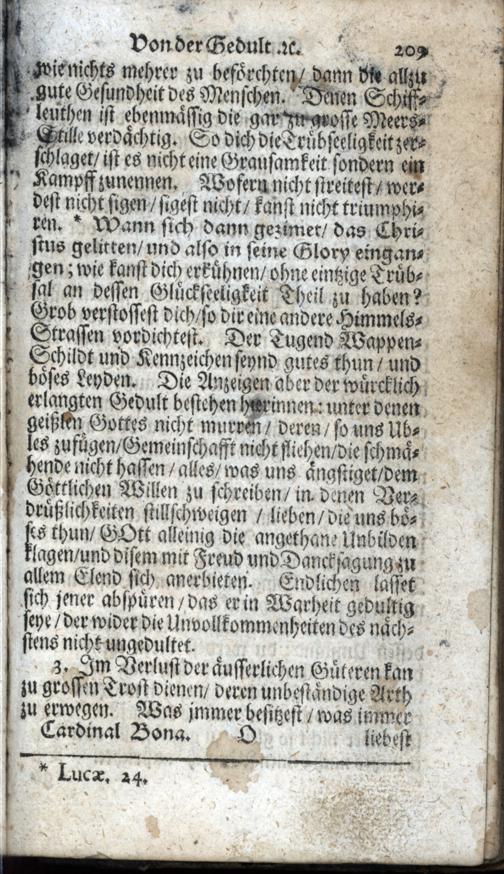 Von der Gedult ꝛc. 209
wie nichts mehrer zu beförchten/ dann die allzu
gute Gesundheit des Menschen. Denen Schiff-
leuthen ist ebenmässig die gar zu grosse Meers-
Stille verdächtig. So dich die Trübseeligkeit zer-
schlaget/ ist es nicht eine Grausamkeit sondern ein
Kampff zunennen. Wofern nicht streitest/ wer-
dest nicht sigen/ sigest nicht/ kanst nicht triumphi-
ren. * Wann sich dann gezimet/ das Chri-
stus gelitten/ und also in seine Glory eingan-
gen; wie kanst dich erkühnen/ ohne eintzige Trüb-
sal an dessen Glückseeligkeit Theil zu haben?
Grob verstossest dich/ so dir eine andere Himmels-
Strassen vordichtest. Der Tugend Wappen-
Schildt und Kennzeichen seynd gutes thun/ und
böses Leyden. Die Anzeigen aber der würcklich
erlangten Gedult bestehen hierinnen: unter denen
geißlen Gottes nicht murren/ deren/ so uns Üb-
les zufügen/ Gemeinschafft nicht fliehen/ die schmä-
hende nicht hassen/ alles/ was uns ängstiget/ dem
Göttlichen Willen zu schreiben/ in denen Ver-
drüßlichkeiten stillschweigen / lieben/ die uns bö-
ses thun/ GOtt alleinig die angethane Unbilden
klagen/ und disem mit Freud und Dancksagung zu
allem Elend sich anerbieten. Endlichen lasset
sich jener abspüren/ das er in Warheit gedultig
seye/ der wider die Unvollkommenheiten des näch-
stens nicht ungedultet.
3. Im Verlust der äusserlichen Güteren kan
zu grossen Trost dienen/ deren unbeständige Arth
zu erwegen. Was immer besitzest/ was immer
Cardinal Bona. O liebest
* Lucæ. 24.